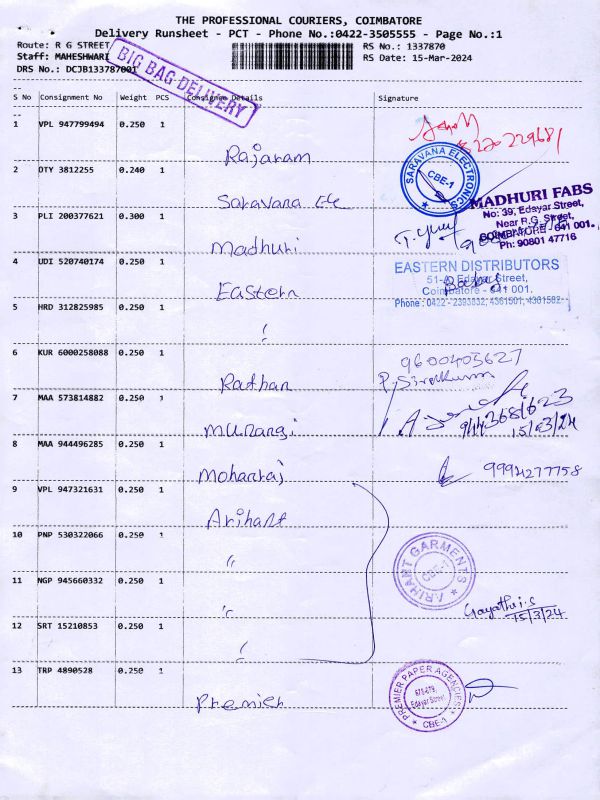 THE PROFESSIONAL COURIERS, COIMBATORE
Delivery Runsheet - PCT - Phone No.:0422-3505555 - Page No.:1
Route: R G STREET RS No.: 1337870
Staff: MAHESHWARI RS Date: 15-Mar-2024
DRS No.: DCJB133787001
BIG BAG DELIVERY
S No Consignment No Weight PCS Consignee Details Signature
1 VPL 947799494 0.250 1
Rajaram
2 OTY 3812255 0.240 1
SARAVANA ELECTRONICS
CBE-1
Saravana Ele
3 PLI 200377621 0.300 1
MADHURI FABS
No: 39, Edayar Street,
Near R.G. Street,
COIMBATORE - 641 001.
Ph: 90801 47716
Madhuri
4 UDI 520740174 0.250 1
EASTERN DISTRIBUTORS
Edayar Street,
Coimbatore - 641 001.
Phone : 0422 - 2393832, 4361501, 4361502
Eastern
5 HRD 312825985 0.250 1
〃
6 KUR 6000258088 0.250 1
9600403627
Rathan
7 MAA 573814882 0.250 1
15/03/24
Murangi
8 MAA 944496285 0.250 1
9994277758
Mohanraj
9 VPL 947321631 0.250 1
Arihant
10 PNP 530322066 0.250 1
ARIHANT GARMENTS
CBE-1
〃
11 NGP 945660332 0.250 1
Gayathri.S
15/3/24
〃
12 SRT 15210853 0.250 1
〃
13 TRP 4890528 0.250 1
PREMIER PAPER AGENCIES
Edayar Street
CBE-1
Premier